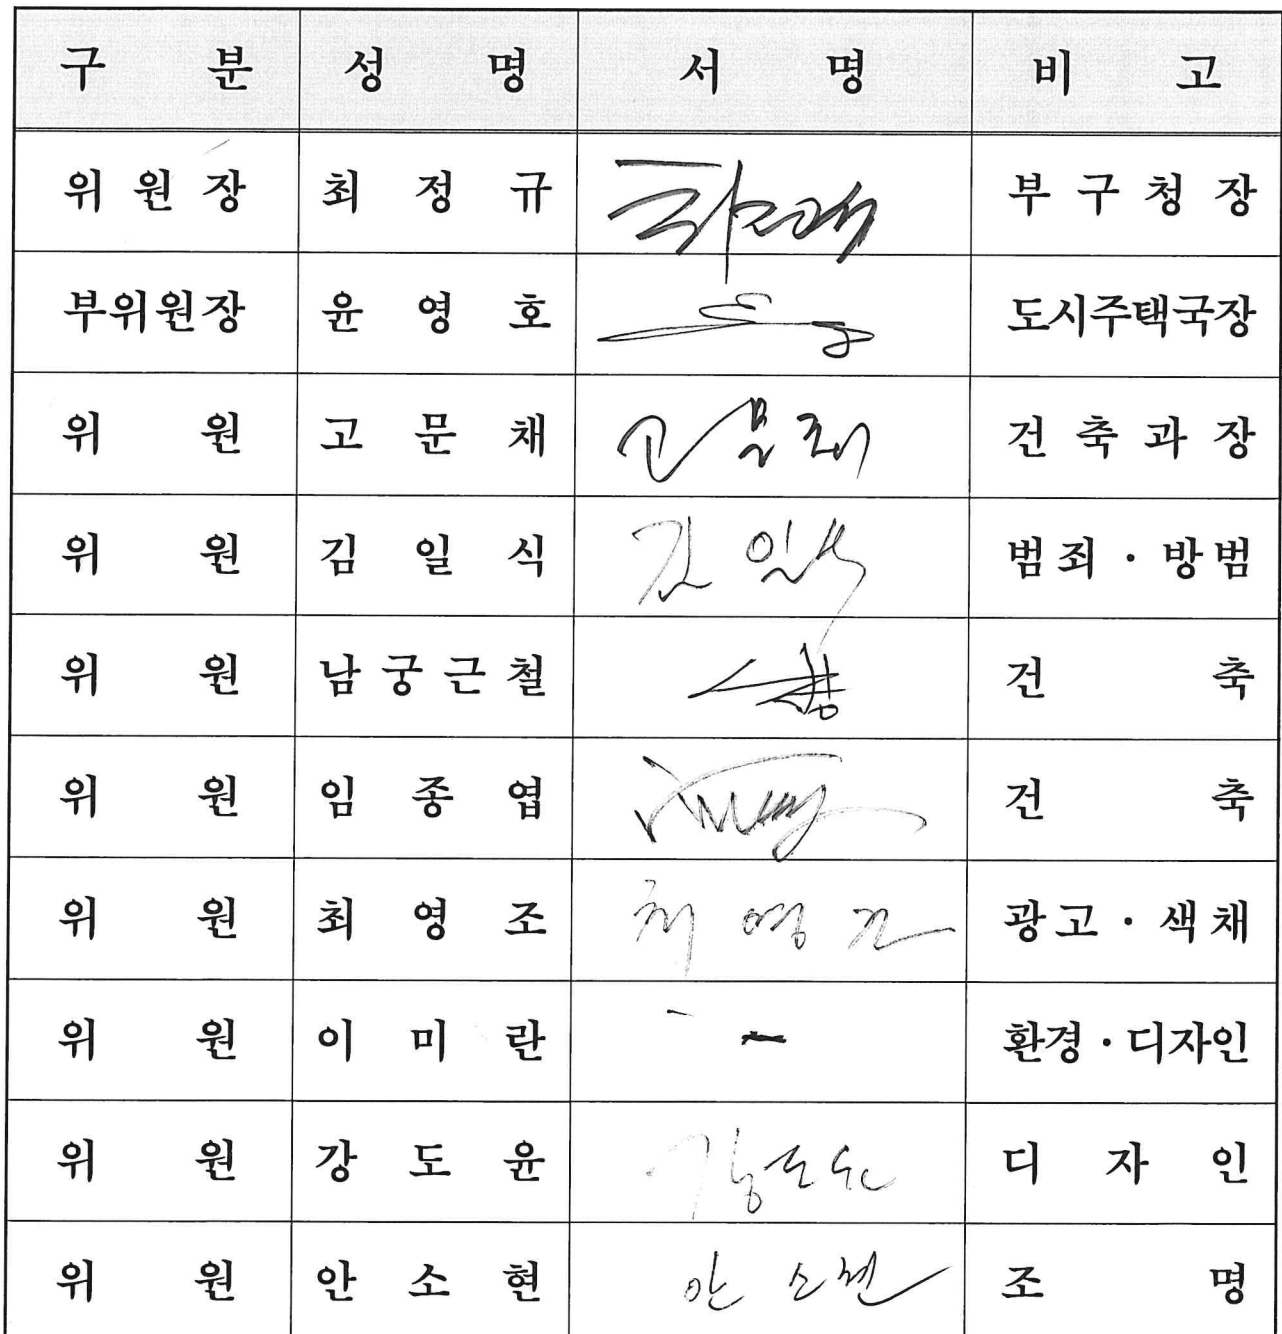 구 분 성 명 서 명 비 고
위 원 장 최 정 규 부 구 청 장
부위원장 윤 영 호 도시주택국장
위 원 고 문 채 고문채 건 축 과 장
위 원 김 일 식 김일식 범죄 · 방범
위 원 남 궁 근 철 건 축
위 원 임 종 엽 건 축
위 원 최 영 조 최영조 광고 · 색채
위 원 이 미 란 - 환경 · 디자인
위 원 강 도 윤 강도윤 디 자 인
위 원 안 소 현 안소현 조 명